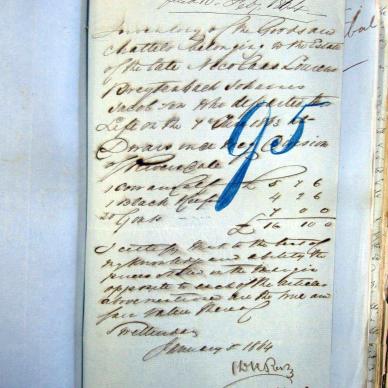 Inventory of the Goods and
Chattels belonging to the Estate
of the late Nicolaas Lourens
Breytenbach Johannes
Jacob son who departed this
Life on the 7th 1883 at
in the Division
of Riversdale
95
1 Cow and Calf £ 5 7 6
1 Black 4 2 6
20 Goats 7 0 0
£ 16 10 0
I certify that to the best of
my knowledge and ability the
prices stated in the margin
opposite to each of the articles
above mentioned are the true and
fair value thereof
Swellendam
January 1884